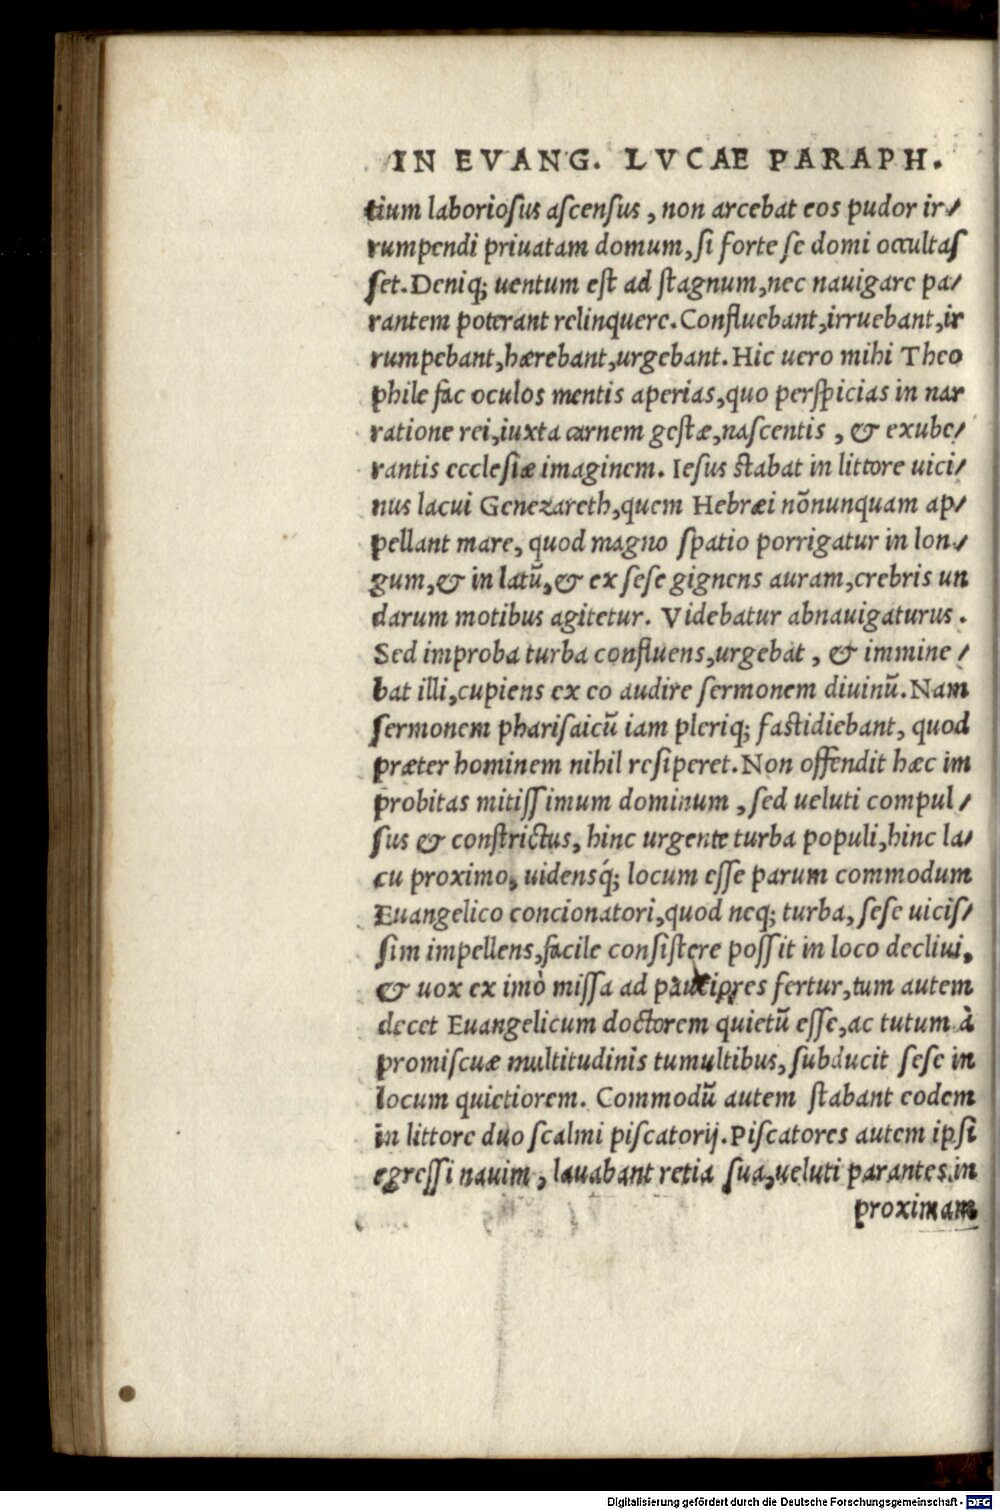 IN EVANG. LVCAE PARAPH.
tium laboriosus ascensus, non arcebat eos pudor ir/
rumpendi priuatam domum, si forte se domi occultas
set. Deniq; uentum est ad stagnum, nec nauigare pa/
rantem poterant relinquere. Confluebant, irruebant, ir
rumpebant, hærebant, urgebant. Hic uero mihi Theo
phile fac oculos mentis aperias, quo perspicias in nar
ratione rei, iuxta carnem gestæ, nascentis, & exube/
rantis ecclesiæ imaginem. Iesus stabat in littore uici/
nus lacui Genezareth, quem Hebræi nõnunquam ap/
pellant mare, quod magno spatio porrigatur in lon/
gum, & in latũ, & ex sese gignens auram, crebris un
darum motibus agitetur. Videbatur abnauigaturus.
Sed improba turba confluens, urgebat, & immine/
bat illi, cupiens ex eo audire sermonem diuinũ. Nam
sermonem pharisaicũ iam pleriq; fastidiebant, quod
præter hominem nihil resiperet. Non offendit hæc im
probitas mitissimum dominum, sed ueluti compul/
sus & constrictus, hinc urgente turba populi, hinc la/
cu proximo, uidensq́; locum esse parum commodum
Euangelico concionatori, quod neq; turba, sese uicis/
sim impellens, facile consistere possit in loco decliui,
& uox ex imò missa ad pauciores fertur, tum autem
decet Euangelicum doctorem quietũ esse, ac tutum à
promiscuæ multitudinis tumultibus, subducit sese in
locum quietiorem. Commodũ autem stabant eodem
in littore duo scalmi piscatorij. Piscatores autem ipsi
egressi nauim, lauabant retia sua, ueluti parantes in
proximam
Digitalisierung gefördert durch die Deutsche Forschungsgemeinschaft - DFG